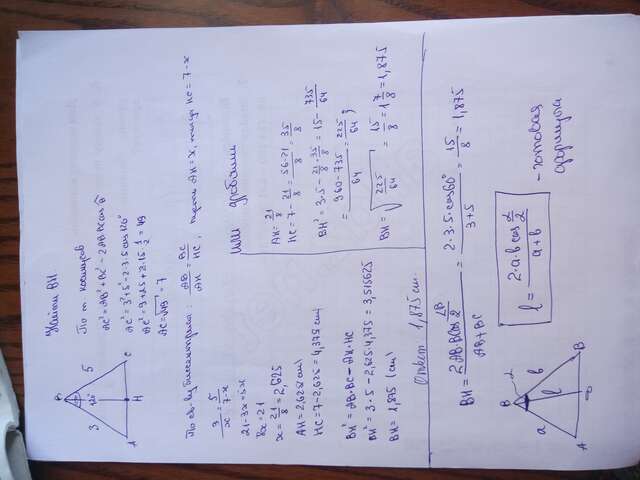 Найти BH
По т. косинусов
AC² = AB² + BC² - 2AB·BC cos B
AC² = 3² + 5² - 2·3·5 cos 120°
AC² = 9 + 25 + 2·15·1/2 = 49
AC = √49 = 7
A
B
C
H
3
5
120°
По св-ву биссектрисы: AB/AH = BC/HC, пусть AH = x, тогда HC = 7-x
3/x = 5/(7-x)
21-3x=5x
8x=21
x = 21/8 = 2,625
AH = 2,625 (см)
HC = 7-2,625 = 4,375 (см)
BH² = AB·BC - AH·HC
BH² = 3·5 - 2,625·4,375 = 3,515625
BH = 1,875 (см)
Ответ 1,875 см.
или дробями
AH = 21/8
HC = 7 - 21/8 = (56-21)/8 = 35/8
BH² = 3·5 - 21/8 · 35/8 = 15 - 735/64
= (960-735)/64 = 225/64;
BH = √(225/64) = 15/8 = 1 7/8 = 1,875
BH = (2AB·BC cos ∠B/2)/(AB+BC) = (2·3·5·cos60°)/(3+5) = 15/8 = 1,875
A
B
B
a
b
l
α
l = (2·a·b cos α/2)/(a+b)
- готовая
формула